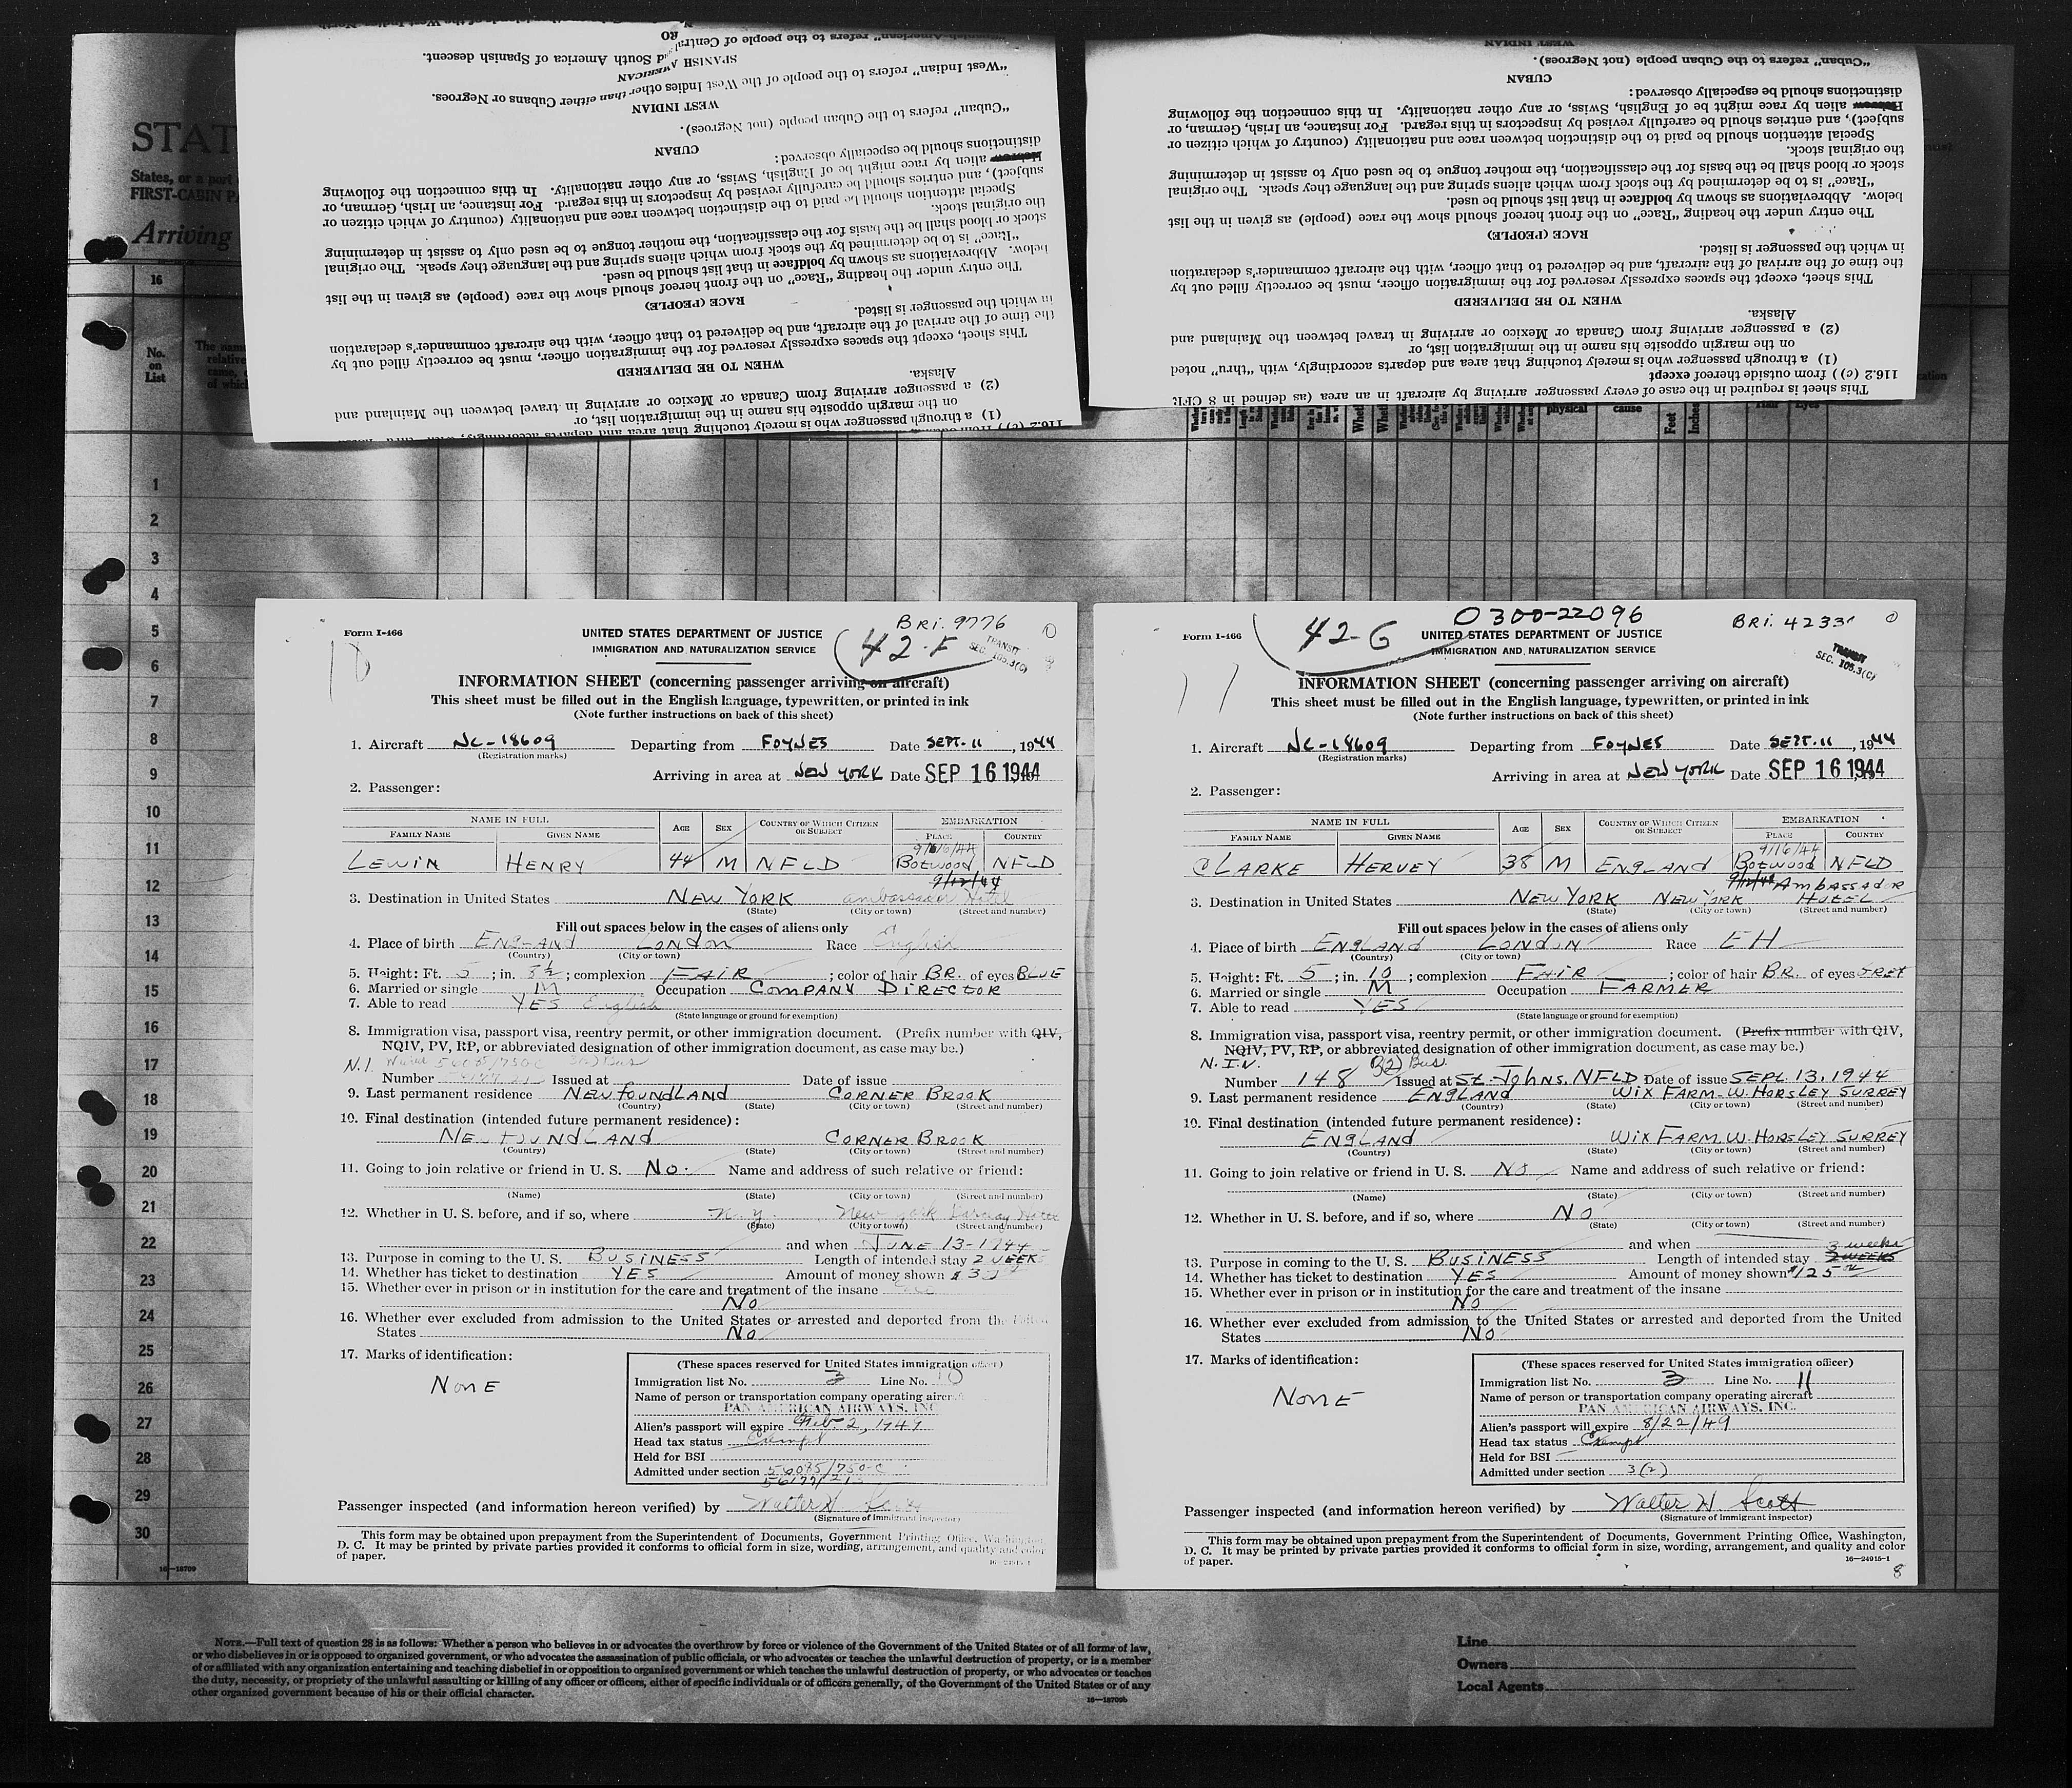 STAT
States, or a port
FIRST-CABIN PA
Arriving
16
No.
on
List
The name
relative
came,
of which
1
2
3
4
5
6
7
8
9
10
11
12
13
14
15
16
17
18
19
20
21
22
23
24
25
26
27
28
29
30
16—18709
and South America of Spanish descent.
SPANISH AMERICAN
"West Indian" refers to the people of the West Indies other than either Cubans or Negroes.
WEST INDIAN
"Cuban" refers to the Cuban people (not Negroes).
CUBAN
distinctions should be especially observed:
Hebrew alien by race might be of English, Swiss, or any other nationality. In this connection the following
subject), and entries should be carefully revised by inspectors in this regard. For instance, an Irish, German, or
Special attention should be paid to the distinction between race and nationality (country of which citizen or
the original stock.
stock or blood shall be the basis for the classification, the mother tongue to be used only to assist in determining
"Race" is to be determined by the stock from which aliens spring and the language they speak. The original
below. Abbreviations as shown by boldface in that list should be used.
The entry under the heading "Race" on the front hereof should show the race (people) as given in the list
RACE (PEOPLE)
in which the passenger is listed.
the time of the arrival of the aircraft, and be delivered to that officer, with the aircraft commander's declaration
This sheet, except the spaces expressly reserved for the immigration officer, must be correctly filled out by
WHEN TO BE DELIVERED
Alaska.
(2) a passenger arriving from Canada or Mexico or arriving in travel between the Mainland and
on the margin opposite his name in the immigration list, or
(1) a through passenger who is merely touching that area and departs accordingly, with "thru" noted
WEST INDIAN
"Cuban" refers to the Cuban people (not Negroes).
CUBAN
distinctions should be especially observed:
Hebrew alien by race might be of English, Swiss, or any other nationality. In this connection the following
subject), and entries should be carefully revised by inspectors in this regard. For instance, an Irish, German, or
Special attention should be paid to the distinction between race and nationality (country of which citizen or
the original stock.
stock or blood shall be the basis for the classification, the mother tongue to be used only to assist in determining
"Race" is to be determined by the stock from which aliens spring and the language they speak. The original
below. Abbreviations as shown by boldface in that list should be used.
The entry under the heading "Race" on the front hereof should show the race (people) as given in the list
RACE (PEOPLE)
in which the passenger is listed.
the time of the arrival of the aircraft, and be delivered to that officer, with the aircraft commander's declaration
This sheet, except the spaces expressly reserved for the immigration officer, must be correctly filled out by
WHEN TO BE DELIVERED
Alaska.
(2) a passenger arriving from Canada or Mexico or arriving in travel between the Mainland and
on the margin opposite his name in the immigration list, or
(1) a through passenger who is merely touching that area and departs accordingly, with "thru" noted
116.2 (c)) from outside thereof except
This sheet is required in the case of every passenger arriving by aircraft in an area (as defined in 8 CFR
physical cause Feet Inches Hair Eyes
BRI. 9776
Form I-466
UNITED STATES DEPARTMENT OF JUSTICE
IMMIGRATION AND NATURALIZATION SERVICE
42-F
TRANSIT
SEC. 105.3(C)
10
INFORMATION SHEET (concerning passenger arriving on aircraft)
This sheet must be filled out in the English language, typewritten, or printed in ink
(Note further instructions on back of this sheet)
1. Aircraft NC-18609 Departing from FOYNES Date SEPT. 11, 1944
(Registration marks)
Arriving in area at NEW YORK Date SEP 16 1944
2. Passenger:
NAME IN FULL AGE SEX COUNTRY OF WHICH CITIZEN OR SUBJECT EMBARKATION
FAMILY NAME GIVEN NAME PLACE COUNTRY
9/16/44
LEWIN HENRY 44 M NFLD BOTWOOD NFLD
9/12/44
3. Destination in United States NEW YORK Ambassador Hotel
(State) (City or town) (Street and number)
Fill out spaces below in the cases of aliens only
4. Place of birth ENGLAND LONDON Race English
(Country) (City or town)
5. Height: Ft. 5; in. 8½; complexion FAIR; color of hair BR. of eyes BLUE
6. Married or single M Occupation COMPANY DIRECTOR
7. Able to read YES English
(State language or ground for exemption)
8. Immigration visa, passport visa, reentry permit, or other immigration document. (Prefix number with QIV,
NQIV, PV, RP, or abbreviated designation of other immigration document, as case may be.)
N.I. Waiver 56085/750-C 3(2) Bus
Number Issued at Date of issue
9. Last permanent residence NEWFOUNDLAND CORNER BROOK
(Country) (State) (City or town) (Street and number)
10. Final destination (intended future permanent residence):
NEWFOUNDLAND CORNER BROOK
(Country) (State) (City or town) (Street and number)
11. Going to join relative or friend in U. S. NO. Name and address of such relative or friend:
(Name) (State) (City or town) (Street and number)
12. Whether in U. S. before, and if so, where N.Y. New York Barclay Hotel
(State) (City or town) (Street and number)
and when JUNE 13-1944
13. Purpose in coming to the U. S. BUSINESS Length of intended stay 2 WEEKS
14. Whether has ticket to destination YES Amount of money shown
15. Whether ever in prison or in institution for the care and treatment of the insane
NO
16. Whether ever excluded from admission to the United States or arrested and deported from the United
States NO
17. Marks of identification:
NONE
(These spaces reserved for United States immigration officer)
Immigration list No. 3 Line No. 10
Name of person or transportation company operating aircraft
PAN AMERICAN AIRWAYS, INC.
Alien's passport will expire Feb. 2, 1949
Head tax status Exempt
Held for BSI
Admitted under section 56085/750-C
Passenger inspected (and information hereon verified) by Walter H. Scott
(Signature of immigrant inspector)
This form may be obtained upon prepayment from the Superintendent of Documents, Government Printing Office, Washington,
D. C. It may be printed by private parties provided it conforms to official form in size, wording, arrangement, and quality and color
of paper.
16—24915-1
O300-22096
BRI. 4233
Form I-466
42-G
UNITED STATES DEPARTMENT OF JUSTICE
IMMIGRATION AND NATURALIZATION SERVICE
TRANSIT
SEC. 105.3(C)
11
INFORMATION SHEET (concerning passenger arriving on aircraft)
This sheet must be filled out in the English language, typewritten, or printed in ink
(Note further instructions on back of this sheet)
1. Aircraft NC-18609 Departing from FOYNES Date SEPT. 11, 1944
(Registration marks)
Arriving in area at NEW YORK Date SEP 16 1944
2. Passenger:
NAME IN FULL AGE SEX COUNTRY OF WHICH CITIZEN OR SUBJECT EMBARKATION
FAMILY NAME GIVEN NAME PLACE COUNTRY
9/16/44
CLARKE HERVEY 38 M ENGLAND BOTWOOD NFLD
9/12/44 AMBASSADOR
3. Destination in United States NEW YORK NEW YORK HOTEL
(State) (City or town) (Street and number)
Fill out spaces below in the cases of aliens only
4. Place of birth ENGLAND LONDON Race EH
(Country) (City or town)
5. Height: Ft. 5; in. 10; complexion FAIR; color of hair BR. of eyes GREY
6. Married or single M Occupation FARMER
7. Able to read YES
(State language or ground for exemption)
8. Immigration visa, passport visa, reentry permit, or other immigration document. (Prefix number with QIV,
NQIV, PV, RP, or abbreviated designation of other immigration document, as case may be.)
N.I.V. 3(2) Bus.
Number 148 Issued at St. Johns, NFLD Date of issue SEPT. 13, 1944
9. Last permanent residence ENGLAND WIX FARM-W. HORSLEY SURREY
(Country) (State) (City or town) (Street and number)
10. Final destination (intended future permanent residence):
ENGLAND WIX FARM W. HORSLEY SURREY
(Country) (State) (City or town) (Street and number)
11. Going to join relative or friend in U. S. NO Name and address of such relative or friend:
(Name) (State) (City or town) (Street and number)
12. Whether in U. S. before, and if so, where NO
(State) (City or town) (Street and number)
and when
3 weeks
13. Purpose in coming to the U. S. BUSINESS Length of intended stay 2 WEEKS
14. Whether has ticket to destination YES Amount of money shown $125
15. Whether ever in prison or in institution for the care and treatment of the insane
NO
16. Whether ever excluded from admission to the United States or arrested and deported from the United
States NO
17. Marks of identification:
NONE
(These spaces reserved for United States immigration officer)
Immigration list No. 3 Line No. 11
Name of person or transportation company operating aircraft
PAN AMERICAN AIRWAYS, INC.
Alien's passport will expire 8/22/49
Head tax status Exempt
Held for BSI
Admitted under section 3(2)
Passenger inspected (and information hereon verified) by Walter H Scott
(Signature of immigrant inspector)
This form may be obtained upon prepayment from the Superintendent of Documents, Government Printing Office, Washington,
D. C. It may be printed by private parties provided it conforms to official form in size, wording, arrangement, and quality and color
of paper.
16—24915-1
8
NOTE.—Full text of question 28 is as follows: Whether a person who believes in or advocates the overthrow by force or violence of the Government of the United States or of all forms of law,
or who disbelieves in or is opposed to organized government, or who advocates the assassination of public officials, or who advocates or teaches the unlawful destruction of property, or is a member
of or affiliated with any organization entertaining and teaching disbelief in or opposition to organized government or which teaches the unlawful destruction of property, or who advocates or teaches
the duty, necessity, or propriety of the unlawful assaulting or killing of any officer or officers, either of specific individuals or of officers generally, of the Government of the United States or of any
other organized government because of his or their official character.
16—18709b
Line
Owners
Local Agents